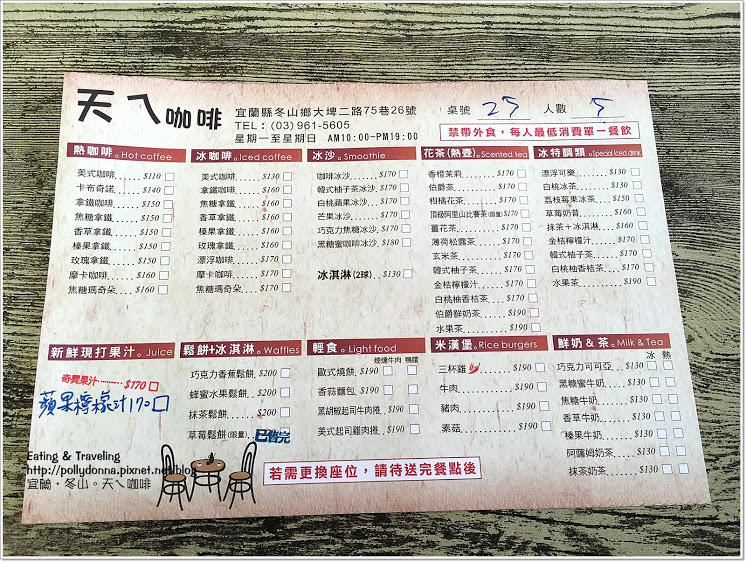 天ㄟ咖啡
宜蘭縣冬山鄉大埤二路75巷26號
TEL：(03) 961-5605
星期一至星期日 AM10:00~PM19:00
桌號 25 人數 5
禁帶外食，每人最低消費單一餐飲
熱咖啡。Hot coffee
美式咖啡 $110
卡布奇諾 $140
拿鐵咖啡 $150
焦糖拿鐵 $150
香草拿鐵 $150
榛果拿鐵 $150
玫瑰拿鐵 $150
摩卡咖啡 $160
焦糖瑪奇朵 $160
冰咖啡。Iced coffee
美式咖啡 $130
拿鐵咖啡 $160
焦糖拿鐵 $160
香草拿鐵 $160
榛果拿鐵 $160
玫瑰拿鐵 $160
漂浮咖啡 $170
摩卡咖啡 $170
焦糖瑪奇朵 $170
冰沙。Smoothie
咖啡冰沙 $170
韓式柚子茶冰沙 $170
白桃蘋果冰沙 $170
芒果冰沙 $170
巧克力焦糖冰沙 $170
黑糖蜜咖啡冰沙 $180
冰淇淋(2球) $130
花茶(熱壺)。Scented tea
香橙茉莉 $170
伯爵茶 $170
柑橘花茶 $170
頂級阿里山比賽茶(限量) $170
薑花茶 $170
薄荷松露茶 $170
玄米茶 $170
韓式柚子茶 $170
金桔檸檬片 $170
白桃柚香桔茶 $190
伯爵鮮奶茶 $190
水果茶 $190
冰特調類。Special Iced drink
漂浮可樂 $130
白桃冰茶 $130
荔枝莓果冰茶 $150
草莓奶昔 $160
抹茶+冰淇淋 $160
金桔檸檬汁 $170
韓式柚子茶 $170
白桃柚香桔茶 $170
水果茶 $190
新鮮現打果汁。Juice
奇異果汁 $170
蘋果檸檬汁170
鬆餅+冰淇淋。Waffles
巧克力香蕉鬆餅 $200
蜂蜜水果鬆餅 $200
抹茶鬆餅 $200
草莓鬆餅(限量) 已售完
輕食。Light food
煙燻牛肉 鴨胸
歐式燒餅 $190
香蒜麵包 $190
黑胡椒起司牛肉捲 $190
美式起司雞肉捲 $190
米漢堡。Rice burgers
三杯雞 $190
牛肉 $190
豬肉 $190
素菇 $190
鮮奶&茶。Milk & Tea
冰 熱
巧克力可可亞 $130
黑糖蜜牛奶 $130
焦糖牛奶 $130
香草牛奶 $130
榛果牛奶 $130
阿薩姆奶茶 $130
抹茶奶茶 $130
若需更換座位，請待送完餐點後
Eating & Traveling
http://pollydonna.pixnet.net/blog
宜蘭・冬山。天ㄟ咖啡